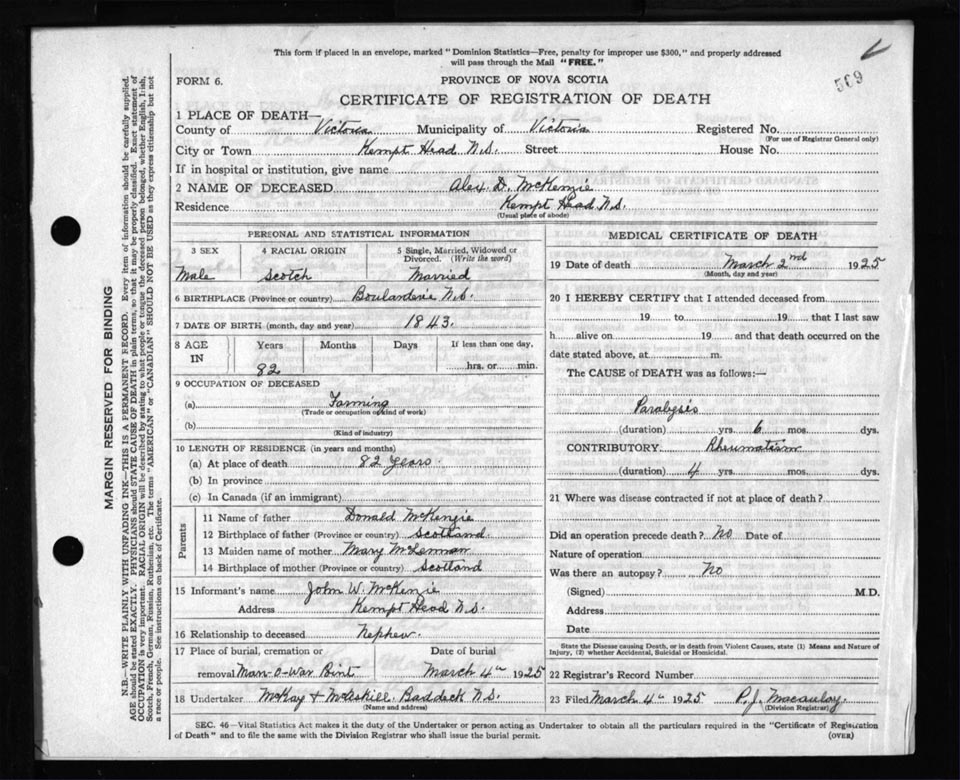 This form if placed in an envelope, marked "Dominion Statistics—Free, penalty for improper use $300," and properly addressed
will pass through the Mail "FREE."
569
FORM 6.
PROVINCE OF NOVA SCOTIA
CERTIFICATE OF REGISTRATION OF DEATH
1 PLACE OF DEATH—
County of Victoria Municipality of Victoria Registered No.
(For use of Registrar General only)
City or Town Kempt Head N.S. Street House No.
If in hospital or institution, give name
2 NAME OF DECEASED Alex. D. McKenzie
Residence Kempt Head N.S.
(Usual place of abode)
PERSONAL AND STATISTICAL INFORMATION
3 SEX 4 RACIAL ORIGIN 5 Single, Married, Widowed or
Divorced. (Write the word)
Male Scotch Married
6 BIRTHPLACE (Province or country) Boulanderie N.S.
7 DATE OF BIRTH (month, day and year) 1843.
8 AGE IN Years Months Days If less than one day,
82 hrs. or min.
9 OCCUPATION OF DECEASED
(a) Farming
(Trade or occupation or kind of work)
(b)
(Kind of industry)
10 LENGTH OF RESIDENCE (in years and months)
(a) At place of death 82 years.
(b) In province
(c) In Canada (if an immigrant)
Parents
11 Name of father Donald McKenzie
12 Birthplace of father (Province or country) Scotland
13 Maiden name of mother Mary McLennan
14 Birthplace of mother (Province or country) Scotland
15 Informant's name John W. McKenzie
Address Kempt Head N.S.
16 Relationship to deceased Nephew.
17 Place of burial, cremation or Date of burial
removal Man-O-War Point March 4th 1925
18 Undertaker McKay & McAskill. Baddeck N.S.
(Name and address)
MEDICAL CERTIFICATE OF DEATH
19 Date of death March 2nd 1925
(Month, day and year)
20 I HEREBY CERTIFY that I attended deceased from
19 to 19 that I last saw
h alive on 19 and that death occurred on the
date stated above, at m.
The CAUSE of DEATH was as follows:—
Paralysis
(duration) yrs. 6 mos. dys.
CONTRIBUTORY Rheumatism
(duration) 4 yrs. mos. dys.
21 Where was disease contracted if not at place of death?
Did an operation precede death? No Date of
Nature of operation
Was there an autopsy? No
(Signed) M.D.
Address
Date
State the Disease causing Death, or in death from Violent Causes, state (1) Means and Nature of
Injury, (2) whether Accidental, Suicidal or Homicidal.
22 Registrar's Record Number
23 Filed March 4th 1925 P.J. Macaulay
(Division Registrar)
SEC. 46—Vital Statistics Act makes it the duty of the Undertaker or person acting as Undertaker to obtain all the particulars required in the "Certificate of Registration
of Death" and to file the same with the Division Registrar who shall issue the burial permit. (OVER)
MARGIN RESERVED FOR BINDING
N.B.—WRITE PLAINLY WITH UNFADING INK—THIS IS A PERMANENT RECORD. Every item of information should be carefully supplied.
AGE should be stated EXACTLY. PHYSICIANS should STATE CAUSE OF DEATH in plain terms, so that it may be properly classified. Exact statement of
OCCUPATION is very important. RACIAL ORIGIN will be described by stating to what people or tongue the deceased person belonged, whether English, Irish,
Scotch, French, German, Russian, Ruthenian, etc. The terms "AMERICAN" or "CANADIAN" SHOULD NOT BE USED as they express citizenship but not
a race or people. See instructions on back of Certificate.